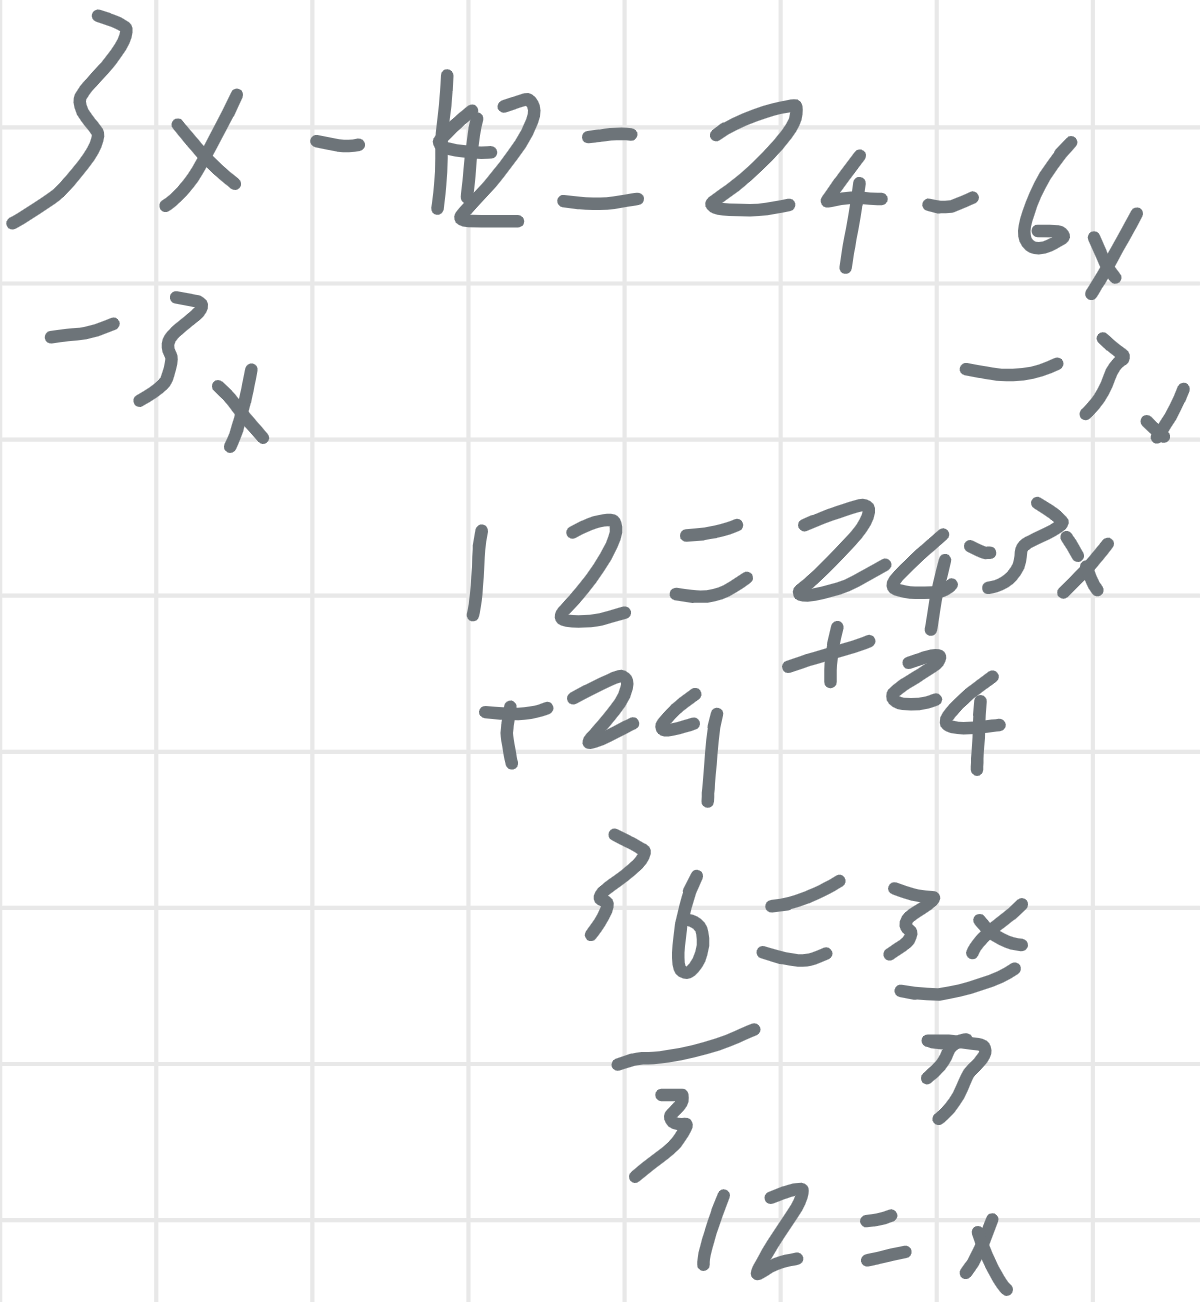 3x - 12 = 24 - 6x
-3x -3x
12 = 24 - 3x
+24 +24
36 = 3x
3 3
12 = x